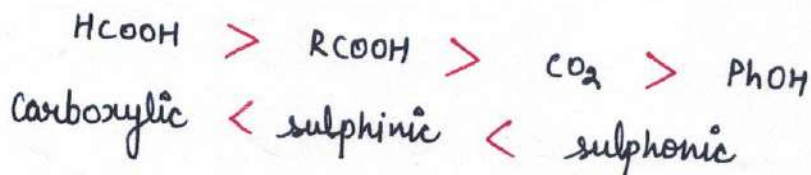 HCOOH > RCOOH > CO₂ > PhOH
Carboxylic < sulphinic < sulphonic